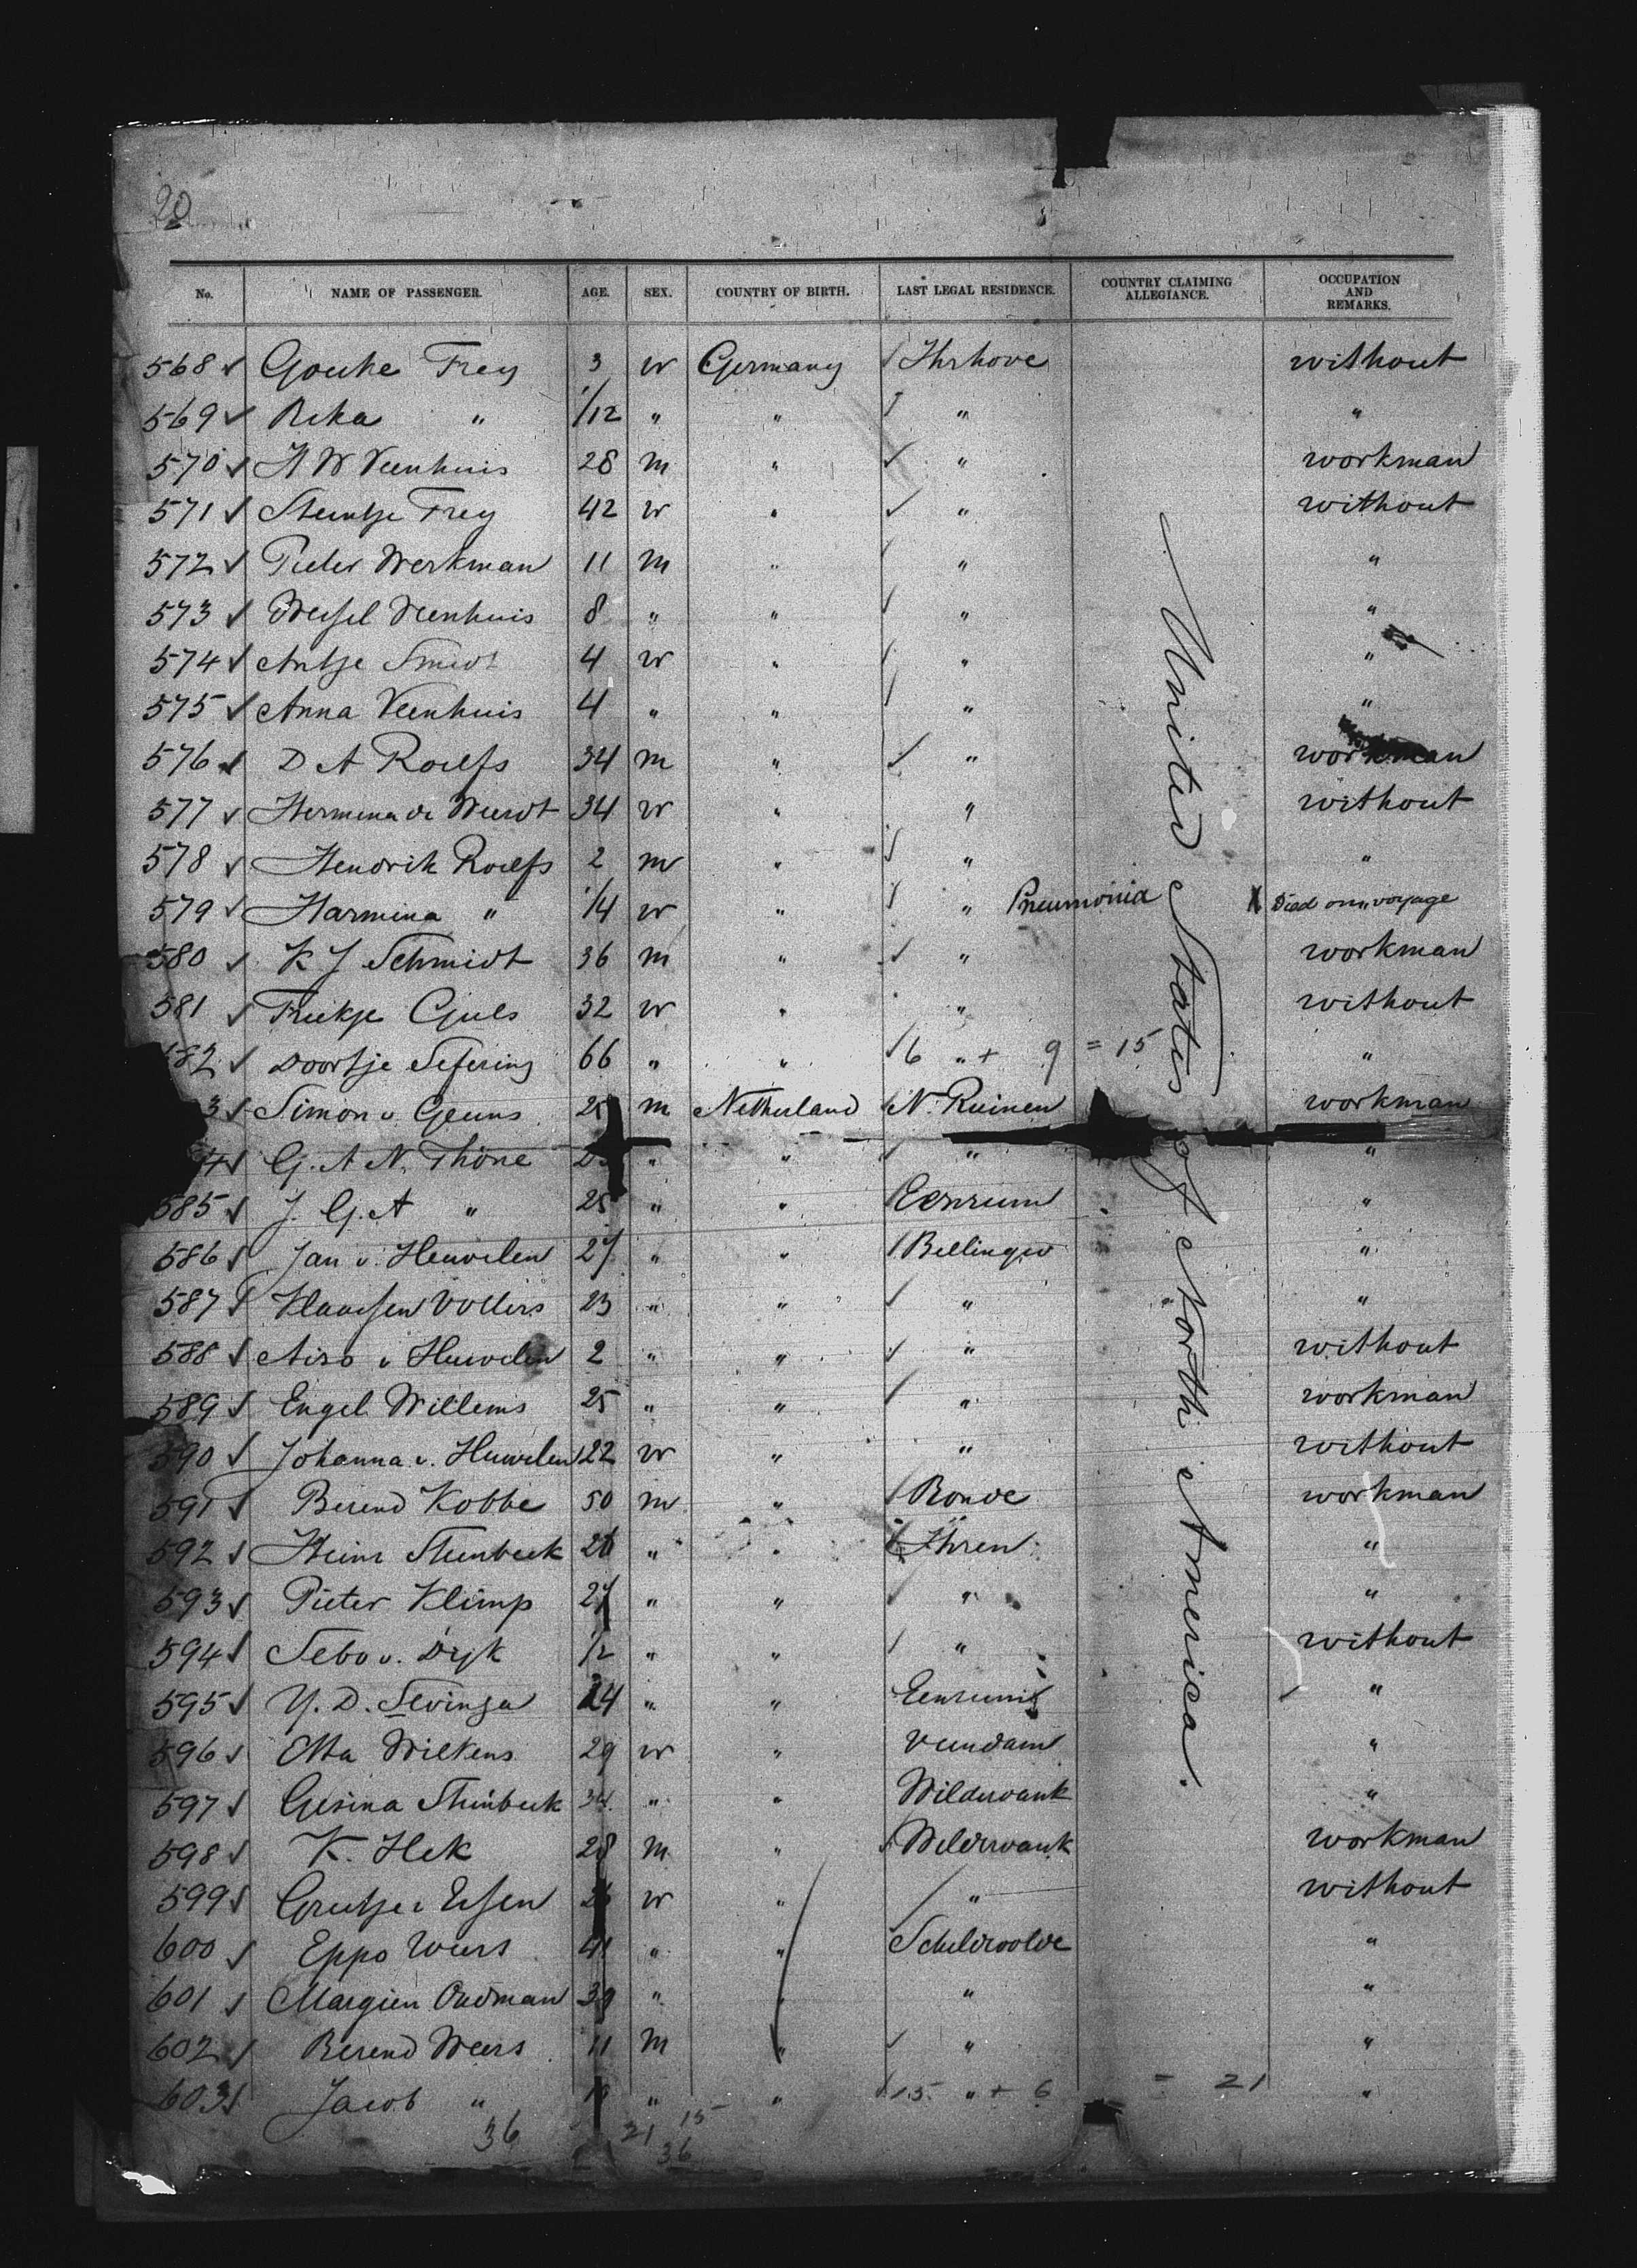 20
No. NAME OF PASSENGER. AGE. SEX. COUNTRY OF BIRTH. LAST LEGAL RESIDENCE. COUNTRY CLAIMING ALLEGIANCE. OCCUPATION AND REMARKS.
568 Gouke Frey 3 w Germany Ihrhove without
569 Reka " 1/12 " " " "
570 H W Veenhuis 28 m " " workman
571 Steintje Frey 42 w " " without
572 Pieter Werkman 11 m " " "
573 Wessel Veenhuis 8 " " " "
574 Antje Smidt 4 w " " "
575 Anna Veenhuis 4 " " " "
576 D A Roelfs 34 m " " workman
577 Hermina de Weerdt 34 w " " without
578 Hendrik Roelfs 2 m " " "
579 Harmina " 1/4 w " " Pneumonia X Died on voyage
580 K J Schmidt 36 m " " workman
581 Friekje 32 w " " without
582 Doortje Sefering 66 " " 6 " + 9 = 15 "
3 Simon v. Geuns 25 m Netherland N. Ruinen workman
4 G. A N. Thöne " " " "
585 J. G. A " 25 " " Eenrum "
586 Jan v. Heuvelen 27 " " Bellingw "
587 Klaassen Volters 23 " " " "
588 Aiso v Heuvelen 2 " " " without
589 Engel Willems 25 " " " workman
590 Johanna v. Heuvelen 22 w " " without
591 Berend Kobbe 50 m " Bonde workman
592 Heinr Steenbeek 26 " " Ihren "
593 Pieter Klimp 27 " " " "
594 Sebo v. Dyk 1/2 " " " without
595 Y. D. 24 " " Eenrum "
596 Etta Wilkens 29 w " Veendam "
597 Gesina Steinbeek 34 " " Wildervank "
598 K. Hek 28 m " Wildervank workman
599 Greetje v Essen 26 w " " without
600 Eppo Weers 41 " " Schildwolde "
601 Margien Oudman 39 " " " "
602 Berend Weers 11 m " " "
603 Jacob " 10 " " 15 " + 6 = 21 "
36 21 15
36
United States of North America.